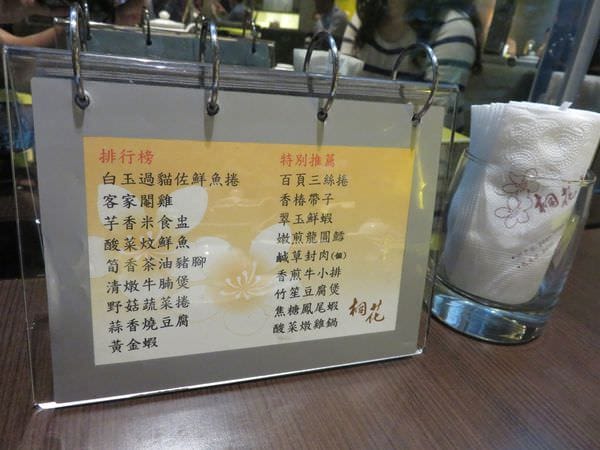 排行榜
白玉過貓佐鮮魚捲
客家閹雞
芋香米食盅
酸菜炆鮮魚
筍香茶油豬腳
清燉牛腩煲
野菇蔬菜捲
蒜香燒豆腐
黃金蝦
特別推薦
百頁三絲捲
香椿帶子
翠玉鮮蝦
嫩煎龍圓鱈
鹹草封肉(個)
香煎牛小排
竹笙豆腐煲
焦糖鳳尾蝦
酸菜燉雞鍋
桐花
桐花